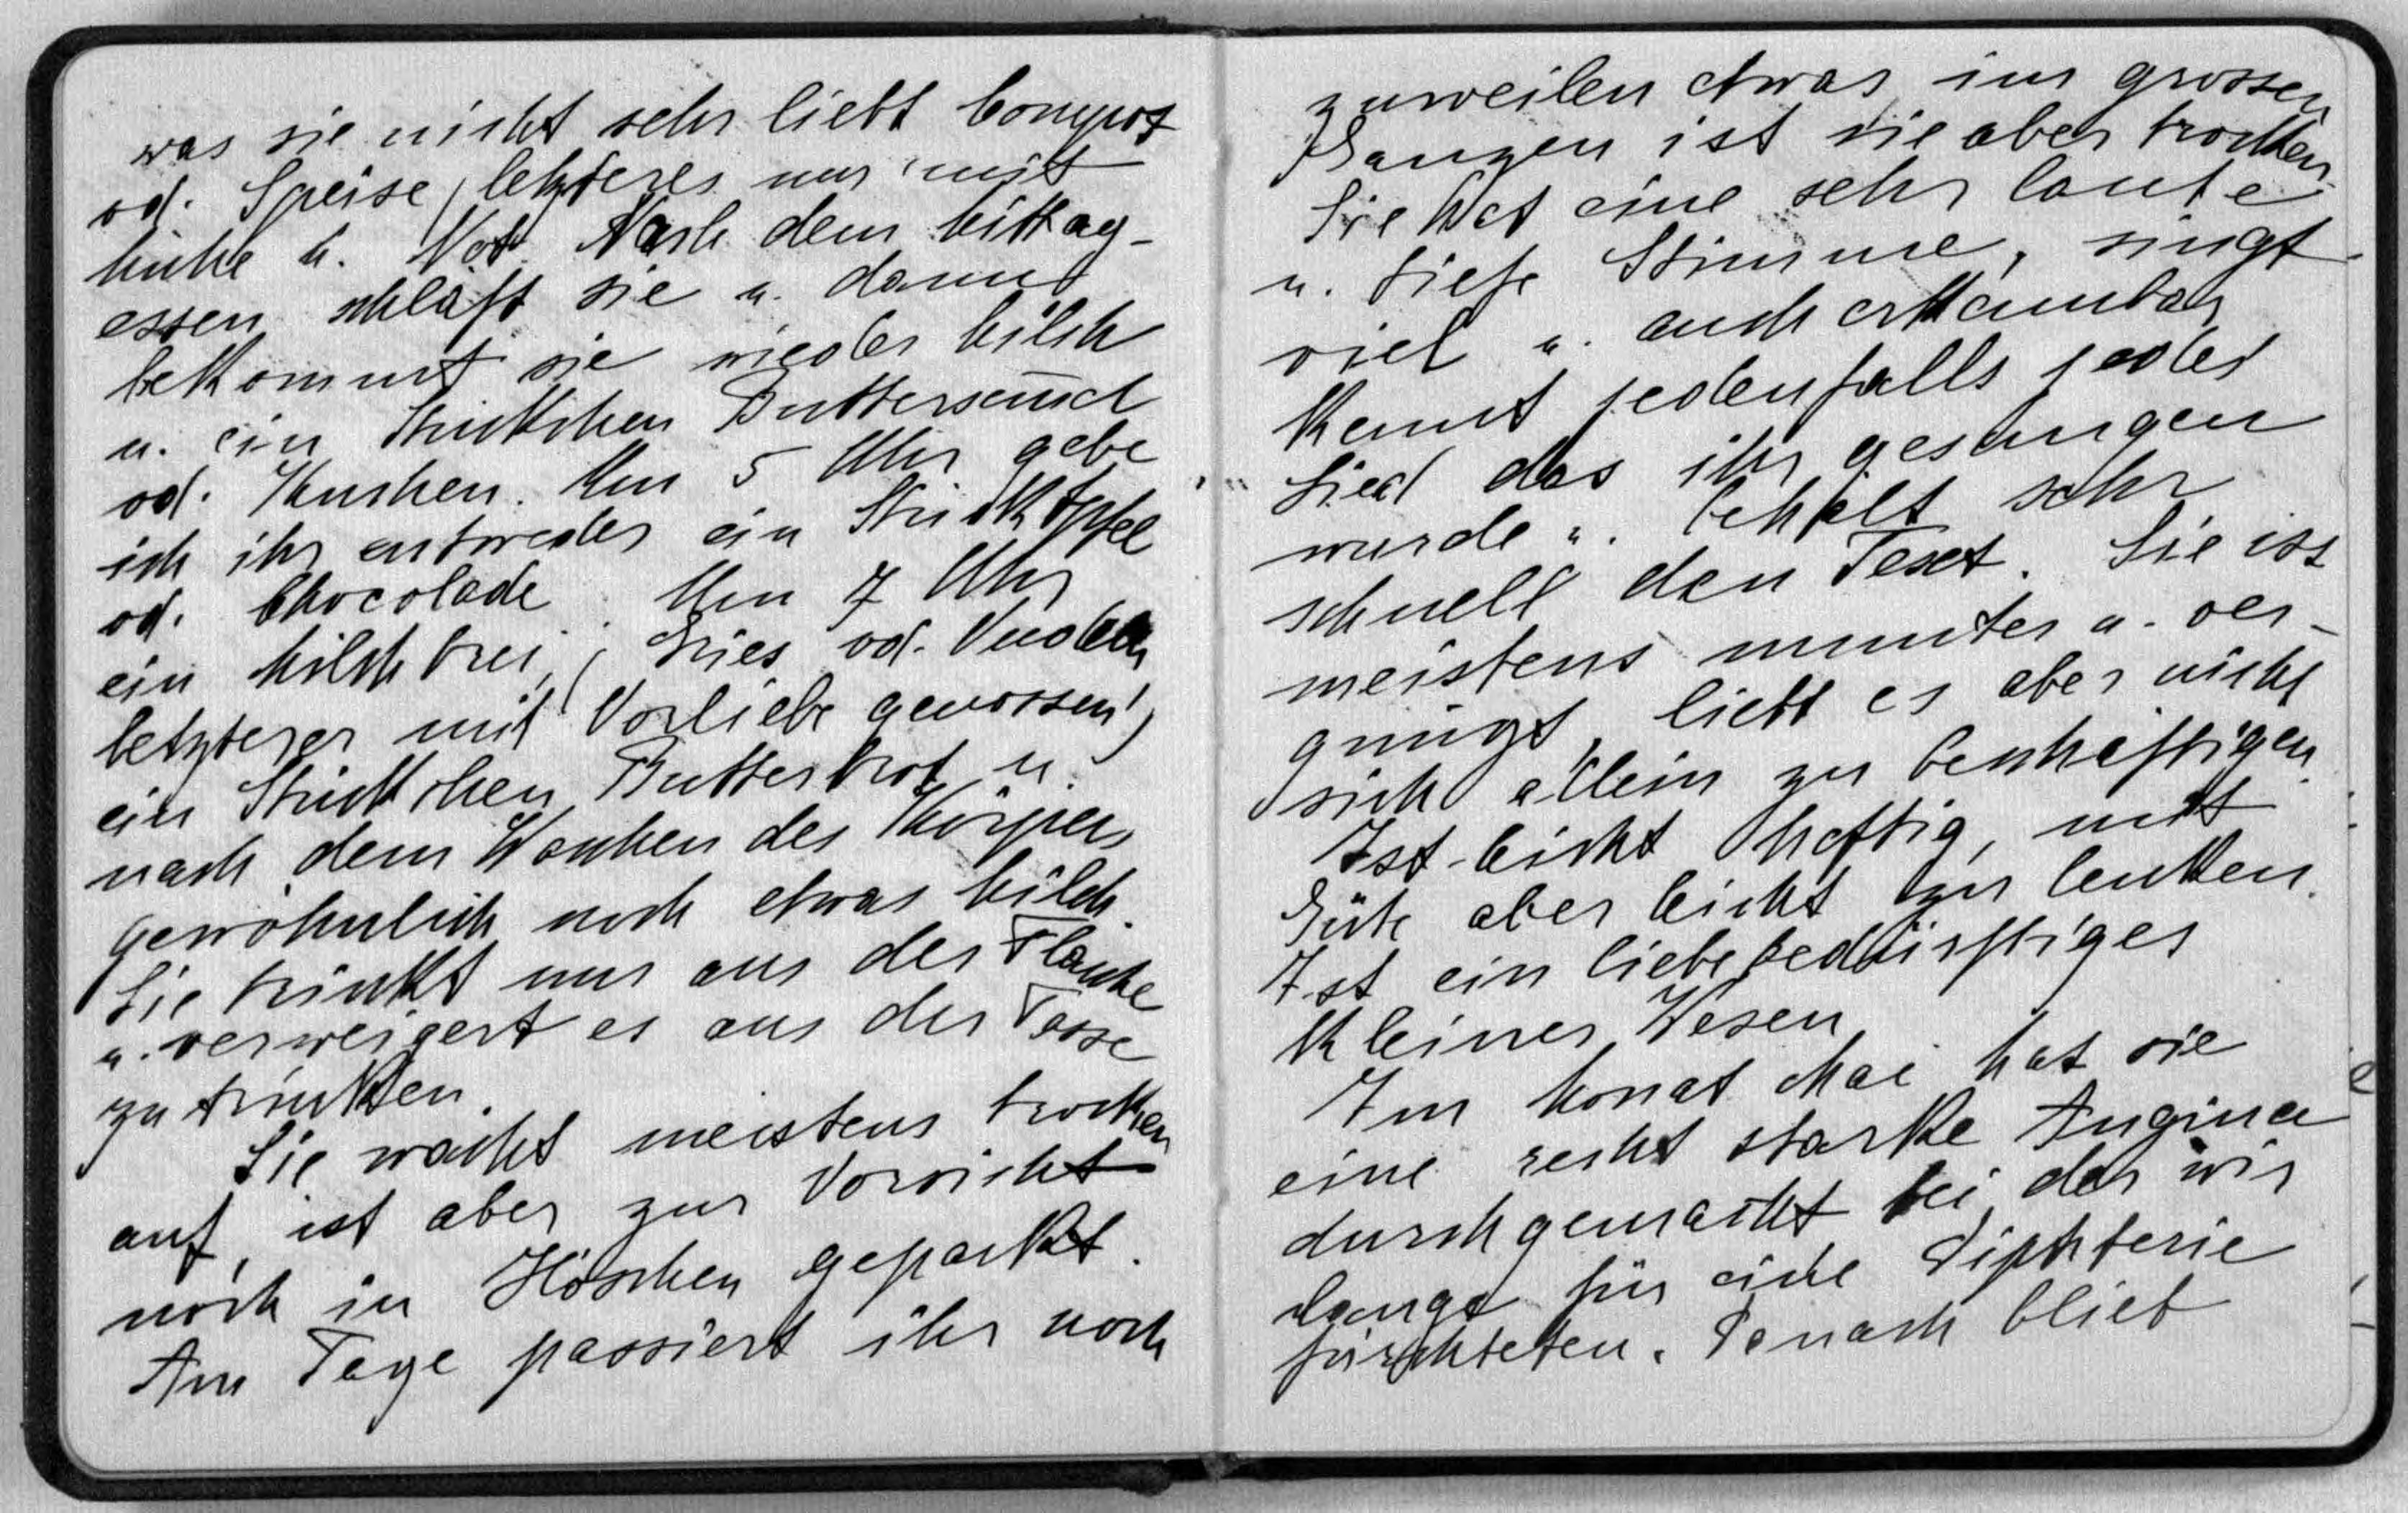 was sie nicht sehr liebt Compot
od. Speise, letzteres nur mit
Mühe u. Not. Nach dem Mittag-
essen schläft sie u. dann
bekommt sie wieder Milch
u. ein Stückchen Buttersemmel
od. Kuchen. Um 5 Uhr gebe
ich ihr entweder ein Stück Apfel
od. Chocolade. Um 7 Uhr
ein Milchbrei, (Gries od. Nudeln
letzterer mit Vorliebe genossen)
ein Stückchen Butterbrot u.
nach dem Waschen des Körpers
gewöhnlich noch etwas Milch.
Sie trinkt nur aus der Flasche
u. verweigert es aus der Tasse
zu trinken.
Sie wacht meistens trocken
auf, ist aber zur Vorsicht
noch in Höschen gepackt.
Am Tage passiert ihr noch
zuweilen etwas im grossen
Ganzen ist sie aber trocken.
Sie hat eine sehr laute
u. tiefe Stimme, singt
viel u. auch erkennbar
kennt jedenfalls jedes
Lied das ihr gesungen
wurde u. behält sehr
schnell den Text. Sie ist
meistens munter u. ver-
gnügt, liebt es aber nicht
sich allein zu beschäftigen.
Ist leicht heftig, mit
Güte aber leicht zu lenken.
Ist ein liebebedürftiges
kleines Wesen.
Im Monat Mai hat sie
eine recht starke Angina
durchgemacht bei der wir
lange für eine Diphterie
fürchteten. Danach blieb